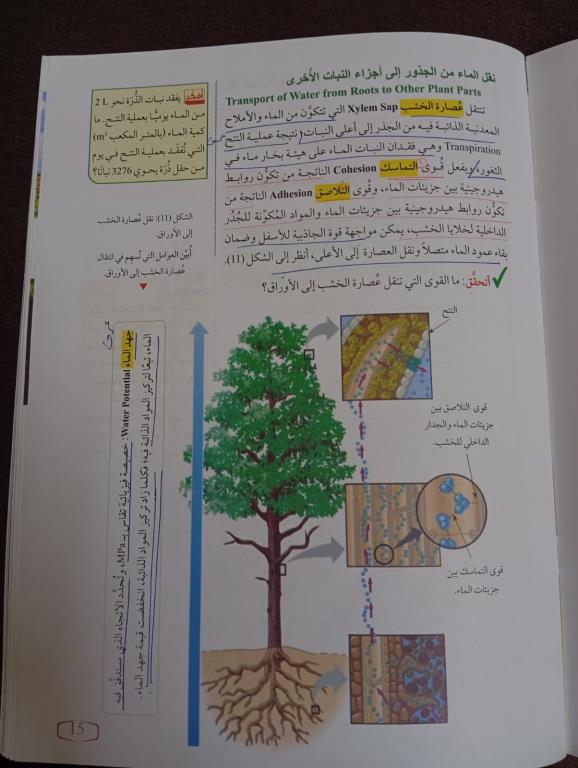 نقل الماء من الجذور إلى أجزاء النبات الأخرى
Transport of Water from Roots to Other Plant Parts
تنتقل عُصارة الخشب Xylem Sap التي تتكوَّن من الماء والأملاح
المعدنية الذائبة فيه من الجذر إلى أعلى النبات؛ نتيجة عملية النتح
Transpiration وهي فقدان النبات الماء على هيئة بخار ماء في
الثغور، وبفعل قُوى التماسك Cohesion الناتجة من تكوُّن روابط
هيدروجينية بين جزيئات الماء، وقُوى التلاصق Adhesion الناتجة من
تكوُّن روابط هيدروجينية بين جزيئات الماء والمواد المُكوِّنة للجُدُر
الداخلية لخلايا الخشب، يمكن مواجهة قوة الجاذبية للأسفل وضمان
بقاء عمود الماء متصلًا ونقل العصارة إلى الأعلى، أنظر إلى الشكل (11).
أتحقَّق: ما القوى التي تنقل عُصارة الخشب إلى الأوراق؟
أفكر يفقد نبات الذُّرَة نحو 2 L
من الماء يوميًّا بعملية النتح. ما
كمية الماء (بالمتر المكعب m³)
التي تُفقَد بعملية النتح في يوم
من حقل ذُرَة يحوي 3276 نباتًا؟
الشكل (11): نقل عُصارة الخشب
إلى الأوراق.
أُبيِّن العوامل التي تُسهِم في انتقال
عُصارة الخشب إلى الأوراق.
النتح
قوى التلاصق بين
جزيئات الماء والجدار
الداخلي للخشب.
قوى التماسك بين
جزيئات الماء.
جهد الماء Water Potential: خصيصة فيزيائية تقاس بـ MPa، وتُحدِّد الاتجاه الذي ستتدفق فيه
الماء، تبعًا لتركيز المواد الذائبة فيه؛ فكلما زاد تركيز المواد الذائبة، انخفضت قيمة جهد الماء.
15